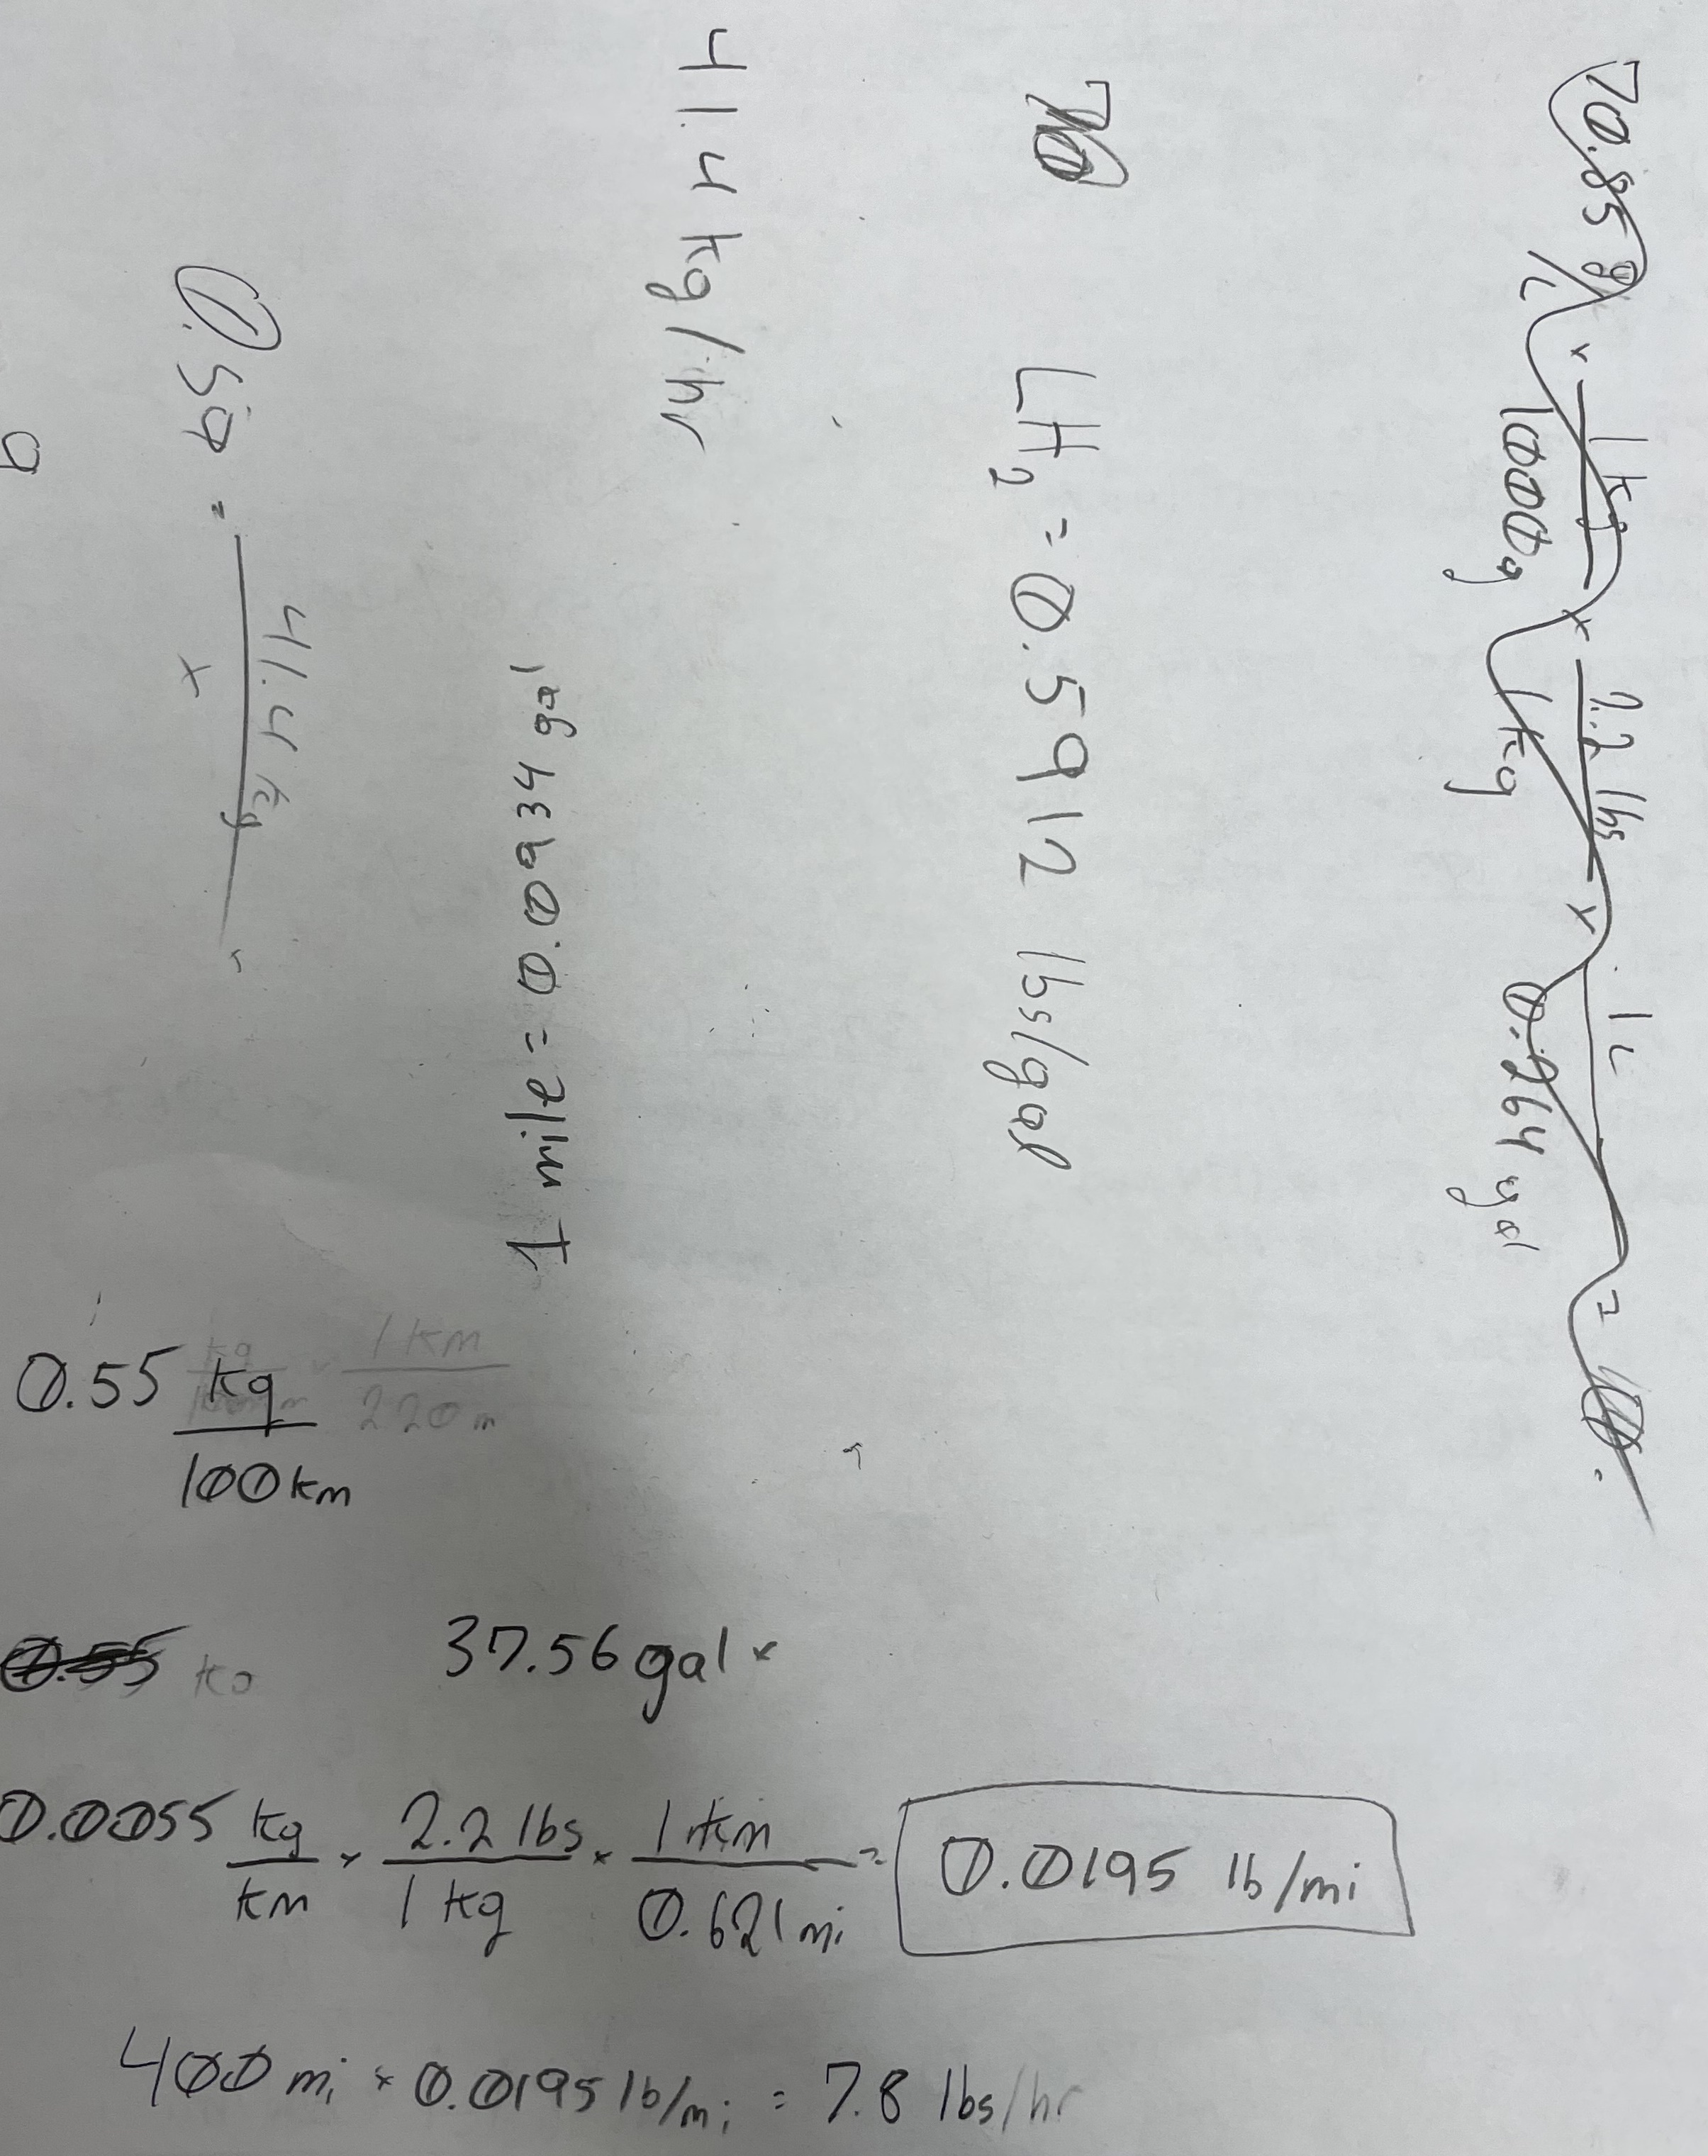 70.85 g/L × 1 kg/1000g × 2.2 lbs/1 kg × 1 L/0.264 gal =
LH2 = 0.5912 lbs/gal
41.4 kg/hr
1 mile = 0.0934 gal
0.59 = 41.4 kg/x
g
0.55 kg/100 km
1 km/220 m
0.55
37.56 gal ×
0.0055 kg/km × 2.2 lbs/1 kg × 1 km/0.621 mi = 0.0195 lb/mi
400 mi × 0.0195 lb/mi = 7.8 lbs/hr